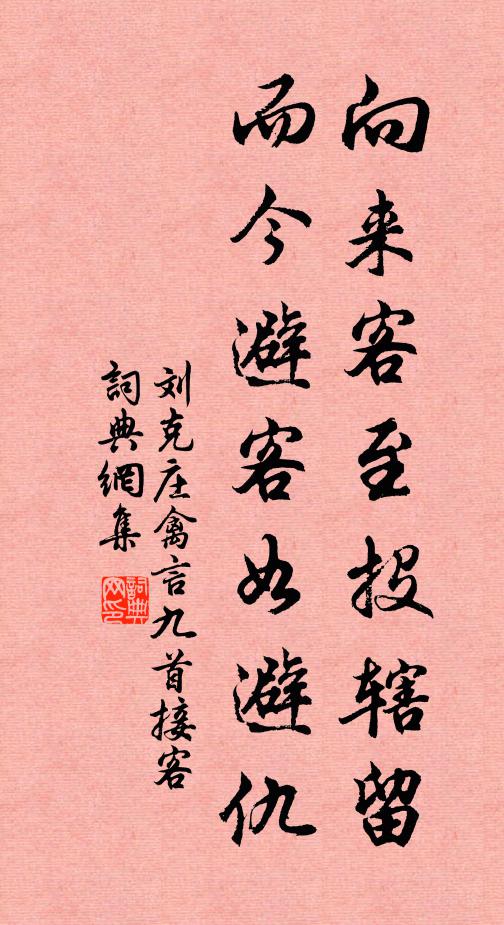 向来客至投辖留
而今避客如避仇
刘克庄禽言九首接客
詞典網集
詞典网印